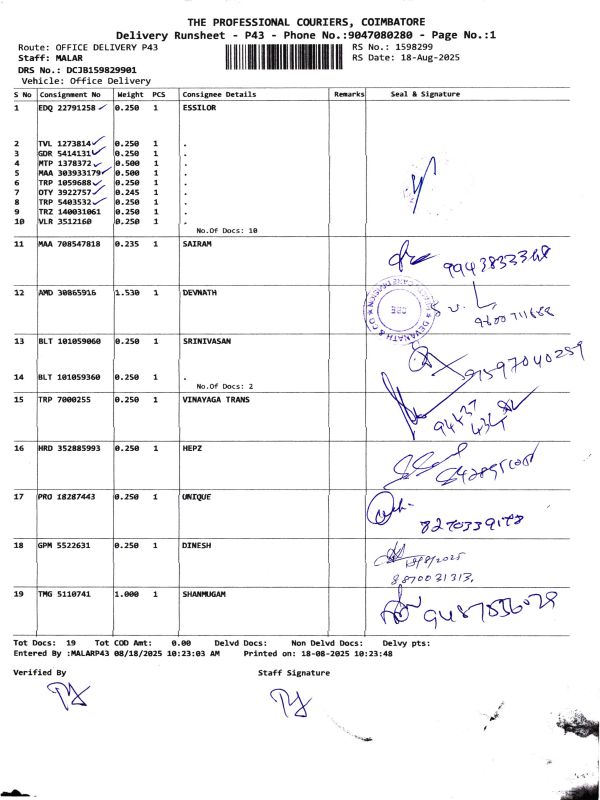 THE PROFESSIONAL COURIERS, COIMBATORE
Delivery Runsheet - P43 - Phone No.:9047080280 - Page No.:1
Route: OFFICE DELIVERY P43 RS No.: 1598299
Staff: MALAR RS Date: 18-Aug-2025
DRS No.: DCJB159829901
Vehicle: Office Delivery
S No Consignment No Weight PCS Consignee Details Remarks Seal & Signature
1 EDQ 22791258 0.250 1 ESSILOR
2 TVL 1273814 0.250 1 .
3 GDR 5414131 0.250 1 .
4 MTP 1378372 0.500 1 .
5 MAA 303933179 0.500 1 .
6 TRP 1059688 0.250 1 .
7 OTY 3922757 0.245 1 .
8 TRP 5403532 0.250 1 .
9 TRZ 140031061 0.250 1 .
10 VLR 3512160 0.250 1 .
No.Of Docs: 10
11 MAA 708547818 0.235 1 SAIRAM
12 AMD 30865916 1.530 1 DEVNATH
13 BLT 101059060 0.250 1 SRINIVASAN
9597040259
14 BLT 101059360 0.250 1 .
No.Of Docs: 2
15 TRP 7000255 0.250 1 VINAYAGA TRANS
16 HRD 352885993 0.250 1 HEPZ
17 PRO 18287443 0.250 1 UNIQUE
18 GPM 5522631 0.250 1 DINESH
18/8/2025
8870031313.
19 TMG 5110741 1.000 1 SHANMUGAM
9487836029
Tot Docs: 19 Tot COD Amt: 0.00 Delvd Docs: Non Delvd Docs: Delvy pts:
Entered By :MALARP43 08/18/2025 10:23:03 AM Printed on: 18-08-2025 10:23:48
Verified By Staff Signature